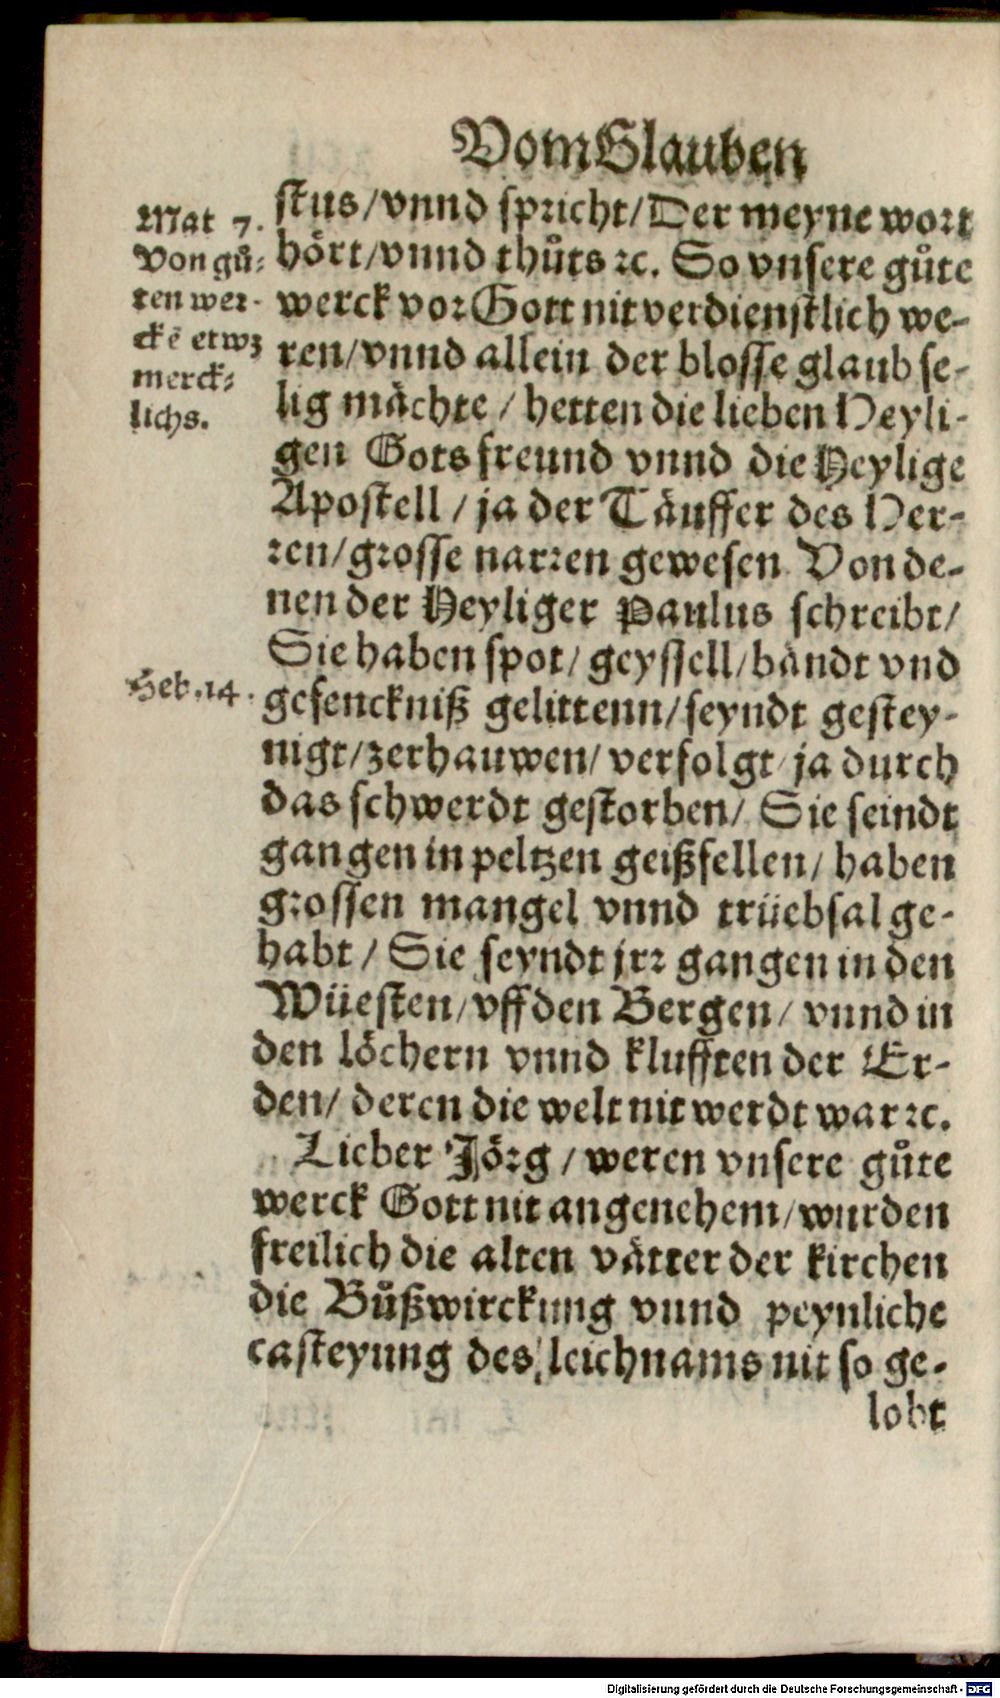 Vom Glauben
Mat 7.
Von gů⸗
ten wer-
ckē etwz
merck⸗
lichs.
stus/vnnd spricht/Der meyne wort
hört/vnnd thůts ꝛc. So vnsere gůte
werck vor Gott nit verdienstlich we-
ren/vnnd allein der blosse glaub se-
lig mächte / hetten die lieben Heyli-
gen Gots freund vnnd die Heylige
Apostell / ja der Täuffer des Her-
ren/grosse narren gewesen Von de-
nen der Heyliger Paulus schreibt/
Sie haben spot/ geyssell/bändt vnd
Heb.14.
gefenckniß gelittenn/seyndt gestey-
nigt/zerhauwen/ verfolgt/ja durch
das schwerdt gestorben/ Sie seindt
gangen in peltzen geißfellen/ haben
grossen mangel vnnd trüebsal ge-
habt / Sie seyndt jrr gangen in den
Wüesten/vff den Bergen/ vnnd in
den löchern vnnd klufften der Er-
den/ deren die welt nit werdt war ꝛc.
Lieber Jörg / weren vnsere gůte
werck Gott nit angenehem/wurden
freilich die alten vätter der kirchen
die Bůßwirckung vnnd peynliche
casteyung des leichnams nit so ge-
lobt
Digitalisierung gefördert durch die Deutsche Forschungsgemeinschaft - DFG